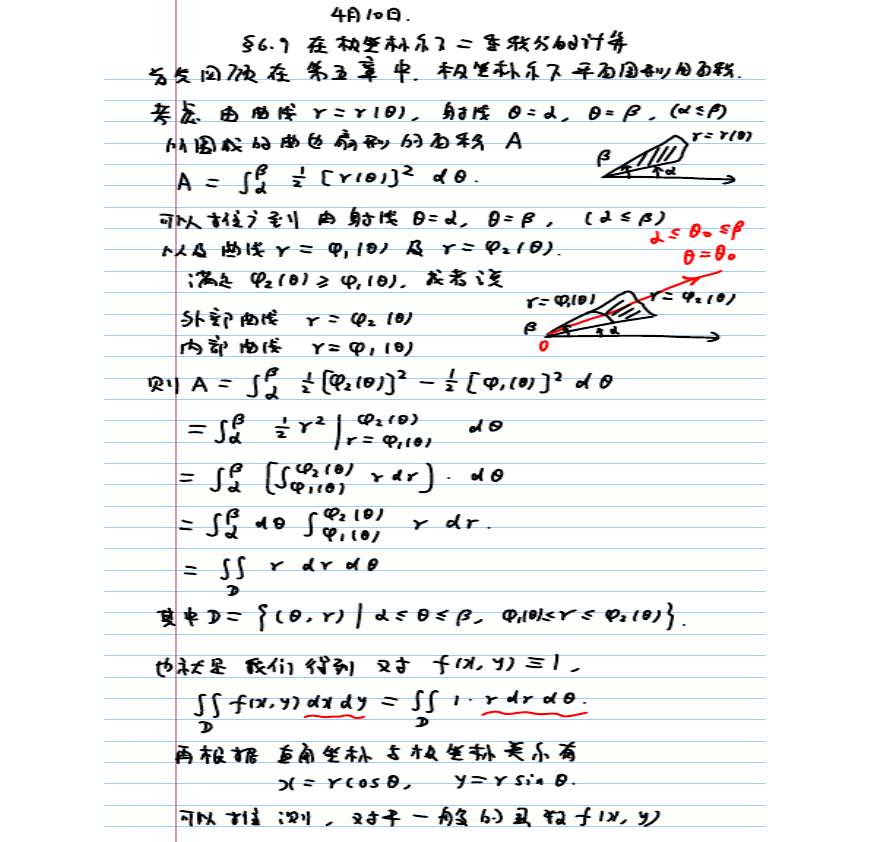 4月10日.
§6.9 在极坐标系下二重积分的计算
首先回顾在第五章中, 极坐标系下平面图形的面积.
考虑 由曲线 r = r(θ), 射线 θ = α, θ = β, (α ≤ β)
所围成的曲边扇形的面积 A
r = r(θ)
β
α
A = ∫_α^β 1/2 [r(θ)]² dθ.
可以推广到 由射线 θ = α, θ = β, (α ≤ β)
α ≤ θ₀ ≤ β
以及曲线 r = φ₁(θ) 及 r = φ₂(θ).
θ = θ₀
满足 φ₂(θ) ≥ φ₁(θ), 或者说
r = φ₁(θ)
r = φ₂(θ)
外部曲线 r = φ₂(θ)
β
α
0
内部曲线 r = φ₁(θ)
则 A = ∫_α^β 1/2 [φ₂(θ)]² − 1/2 [φ₁(θ)]² dθ
= ∫_α^β 1/2 r² |_{r = φ₁(θ)}^{φ₂(θ)} dθ
= ∫_α^β [∫_{φ₁(θ)}^{φ₂(θ)} r dr] · dθ
= ∫_α^β dθ ∫_{φ₁(θ)}^{φ₂(θ)} r dr.
= ∬_D r dr dθ
其中 D = {(θ, r) | α ≤ θ ≤ β, φ₁(θ) ≤ r ≤ φ₂(θ)}.
也就是 我们得到 对于 f(x, y) ≡ 1,
∬_D f(x, y) dx dy = ∬_D 1 · r dr dθ.
再根据 直角坐标与极坐标关系有
x = r cos θ, y = r sin θ.
可以推测, 对于一般的函数 f(x, y)